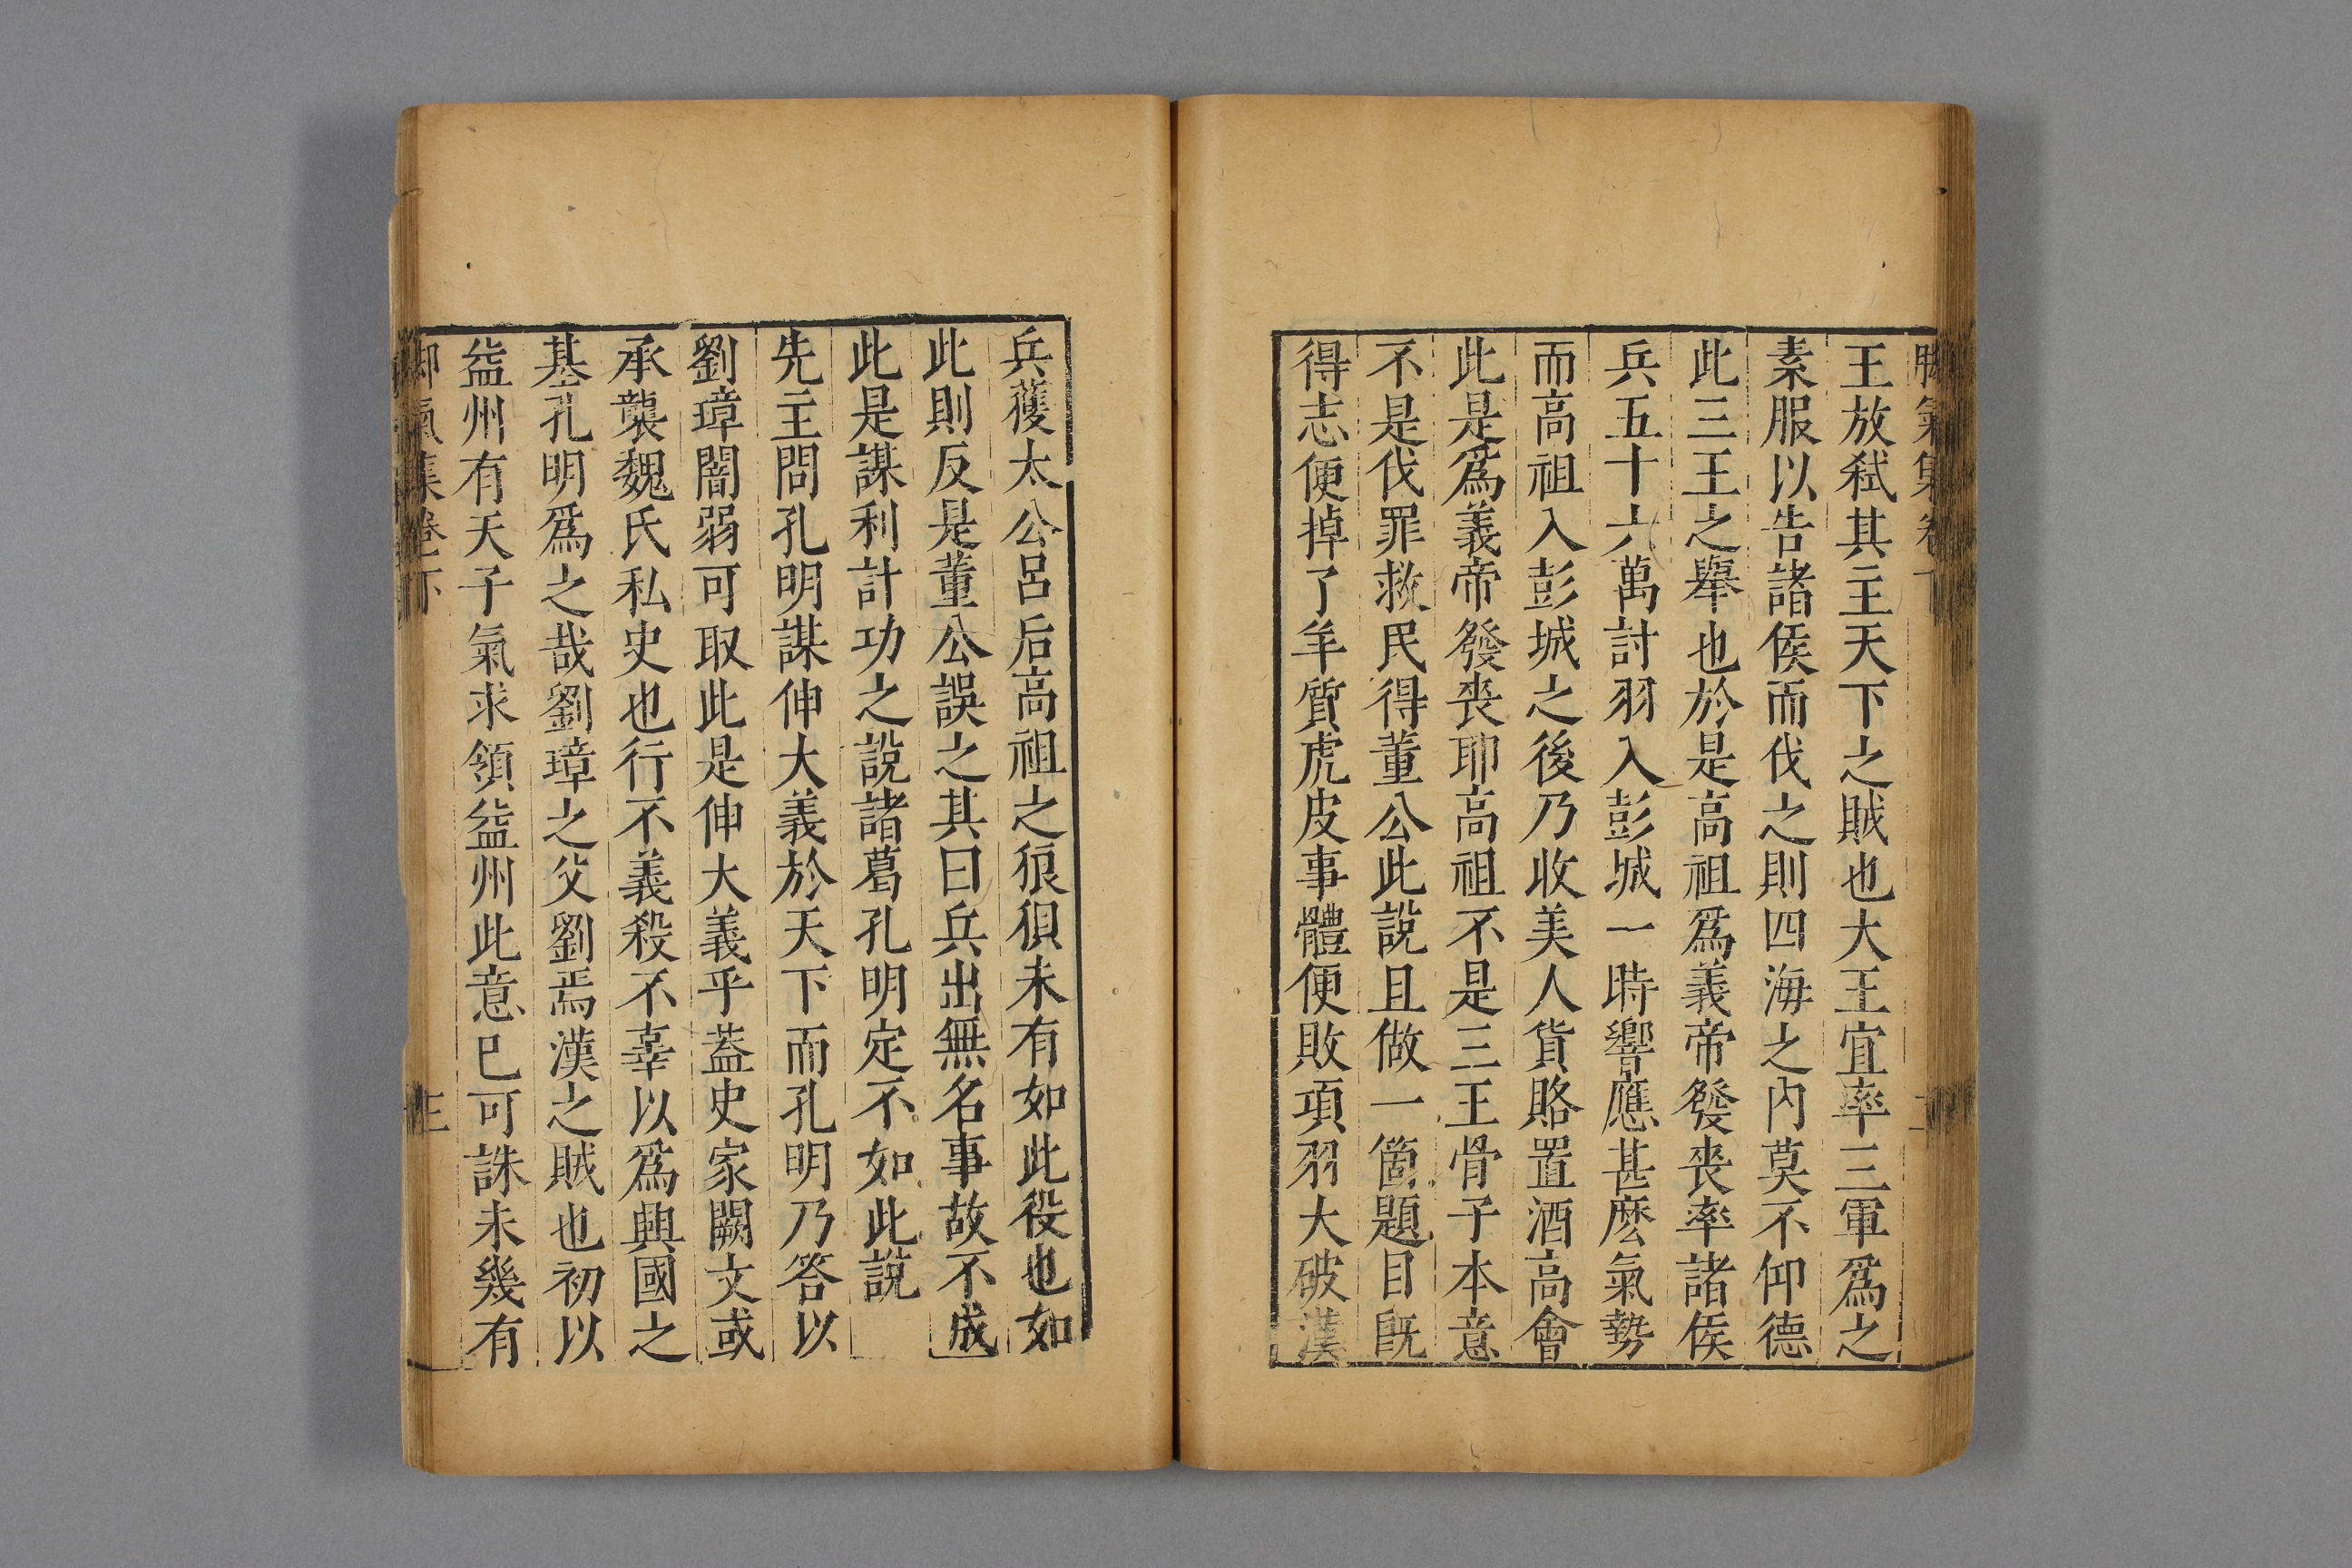 脚氣集卷下
二
王放弒其主天下之賊也大王宜率三軍爲之
素服以告諸侯而伐之則四海之內莫不仰德
此三王之舉也於是高祖爲義帝發喪率諸侯
兵五十六萬討羽入彭城一時響應甚麽氣勢
而高祖入彭城之後乃收美人貨賂置酒高會
此是爲義帝發喪耶高祖不是三王骨子本意
不是伐罪救民得董公此說且做一箇題目旣
得志便掉了羊質虎皮事體便敗項羽大破漢
兵獲太公呂后高祖之狼狽未有如此役也如
此則反是董公誤之其曰兵出無名事故不成
此是謀利計功之說諸葛孔明定不如此說
先主問孔明謀伸大義於天下而孔明乃答以
劉璋闇弱可取此是伸大義乎蓋史家闕文或
承襲魏氏私史也行不義殺不辜以爲興國之
基孔明爲之哉劉璋之父劉焉漢之賊也初以
益州有天子氣求領益州此意已可誅未幾有
脚氣集卷下
三